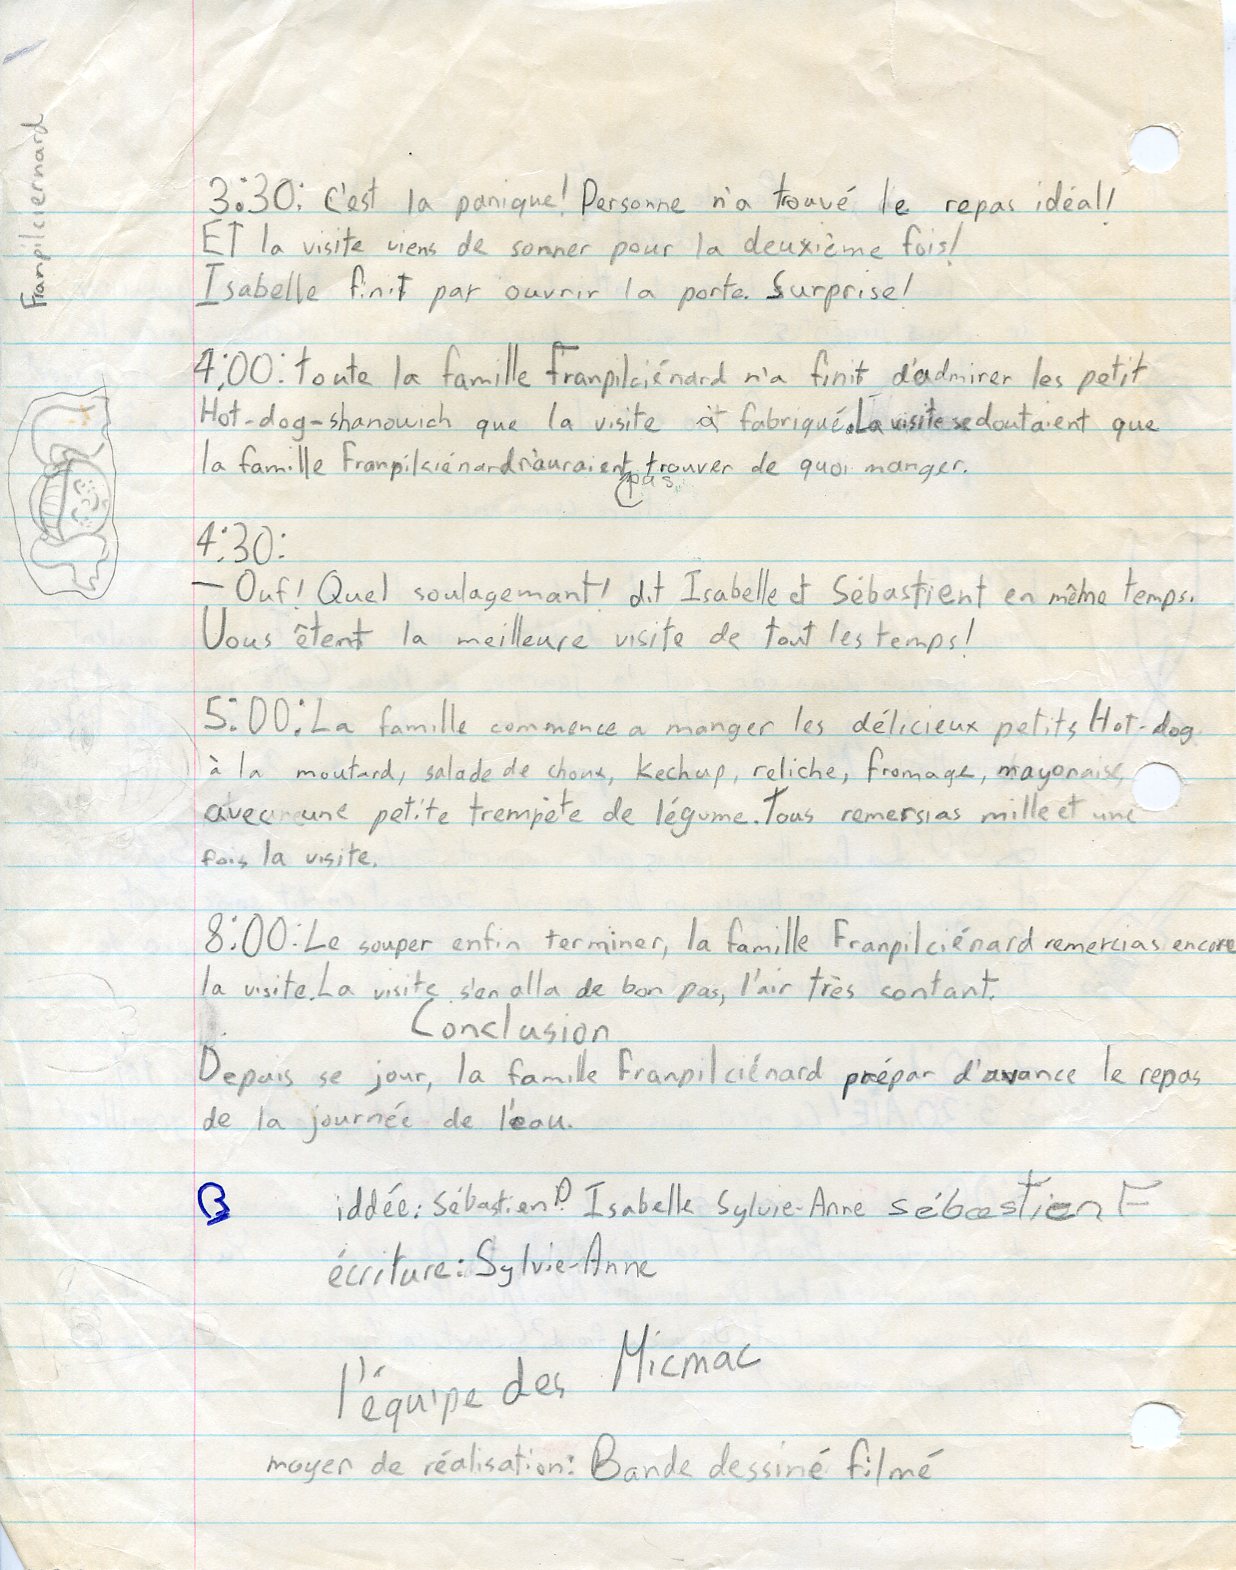 Franpilciernard
3:30: C'est la panique! Personne n'a trouvé le repas idéal!
ET la visite viens de sonner pour la deuxième fois!
Isabelle finit par ouvrir la porte. Surprise!
4:00: toute la famille Franpilciénard n'a finit d'admirer les petit
Hot-dog-shanowich que la visite à fabriqué. La visite se doutaient que
la famille Franpilciénard n'auraient trouver de quoi manger.
pas
4:30:
— Ouf! Quel soulagemant! dit Isabelle et Sébastient en même temps.
Vous êtent la meilleure visite de tout les temps!
5:00: La famille commence a manger les délicieux petits Hot-dog
à la moutard, salade de choux, kechup, reliche, fromage, mayonaise,
avec une petite trempête de légume. Tous remersias mille et une
fois la visite.
8:00: Le souper enfin terminer, la famille Franpilciénard remercias encore
la visite. La visite s'en alla de bon pas, l'air très contant.
Conclusion
Depuis se jour, la famille Franpilciénard prépar d'avance le repas
de la journée de l'eau.
B iddée: Sébastien P. Isabelle Sylvie-Anne Sébastien F
écriture: Sylvie-Anne
l'équipe des Micmac
moyen de réalisation: Bande dessiné filmé